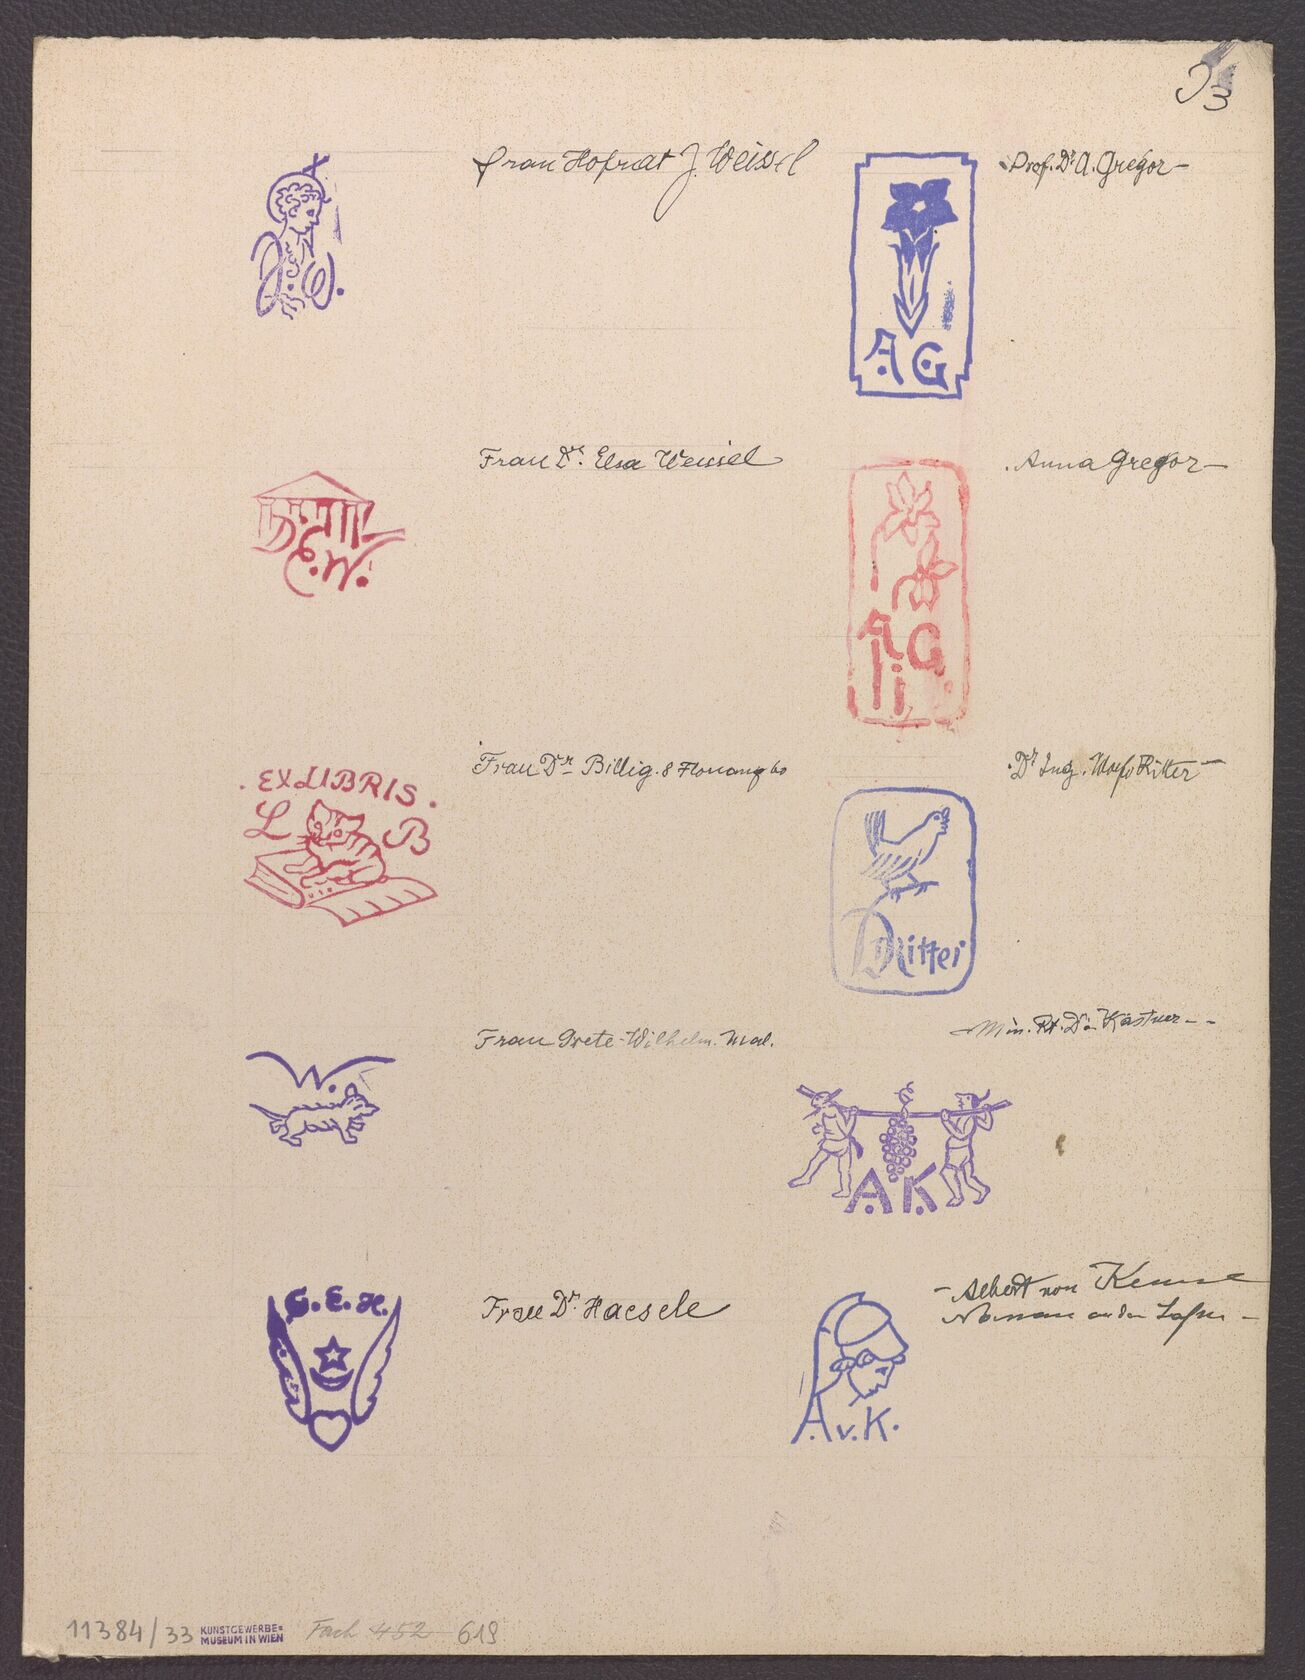 33
Frau Hofrat J. Weisel
J. W.
Prof. Dr A. Gregor
A G
Frau Dr. Elsa Weisel
E. W.
Anna Gregor
A G
EX LIBRIS
L B
Frau Dr Billig. 8
Dr Ing. Ritter
Dr Ritter
Frau Grete Wilhelm.
W.
Min. Rt. Dr Kästner
A K
G. E. H.
Frau Dr. Haesele
Albert von
an der
A. v. K.
11384/33 KUNSTGEWERBE=
MUSEUM IN WIEN
Fach 452 619